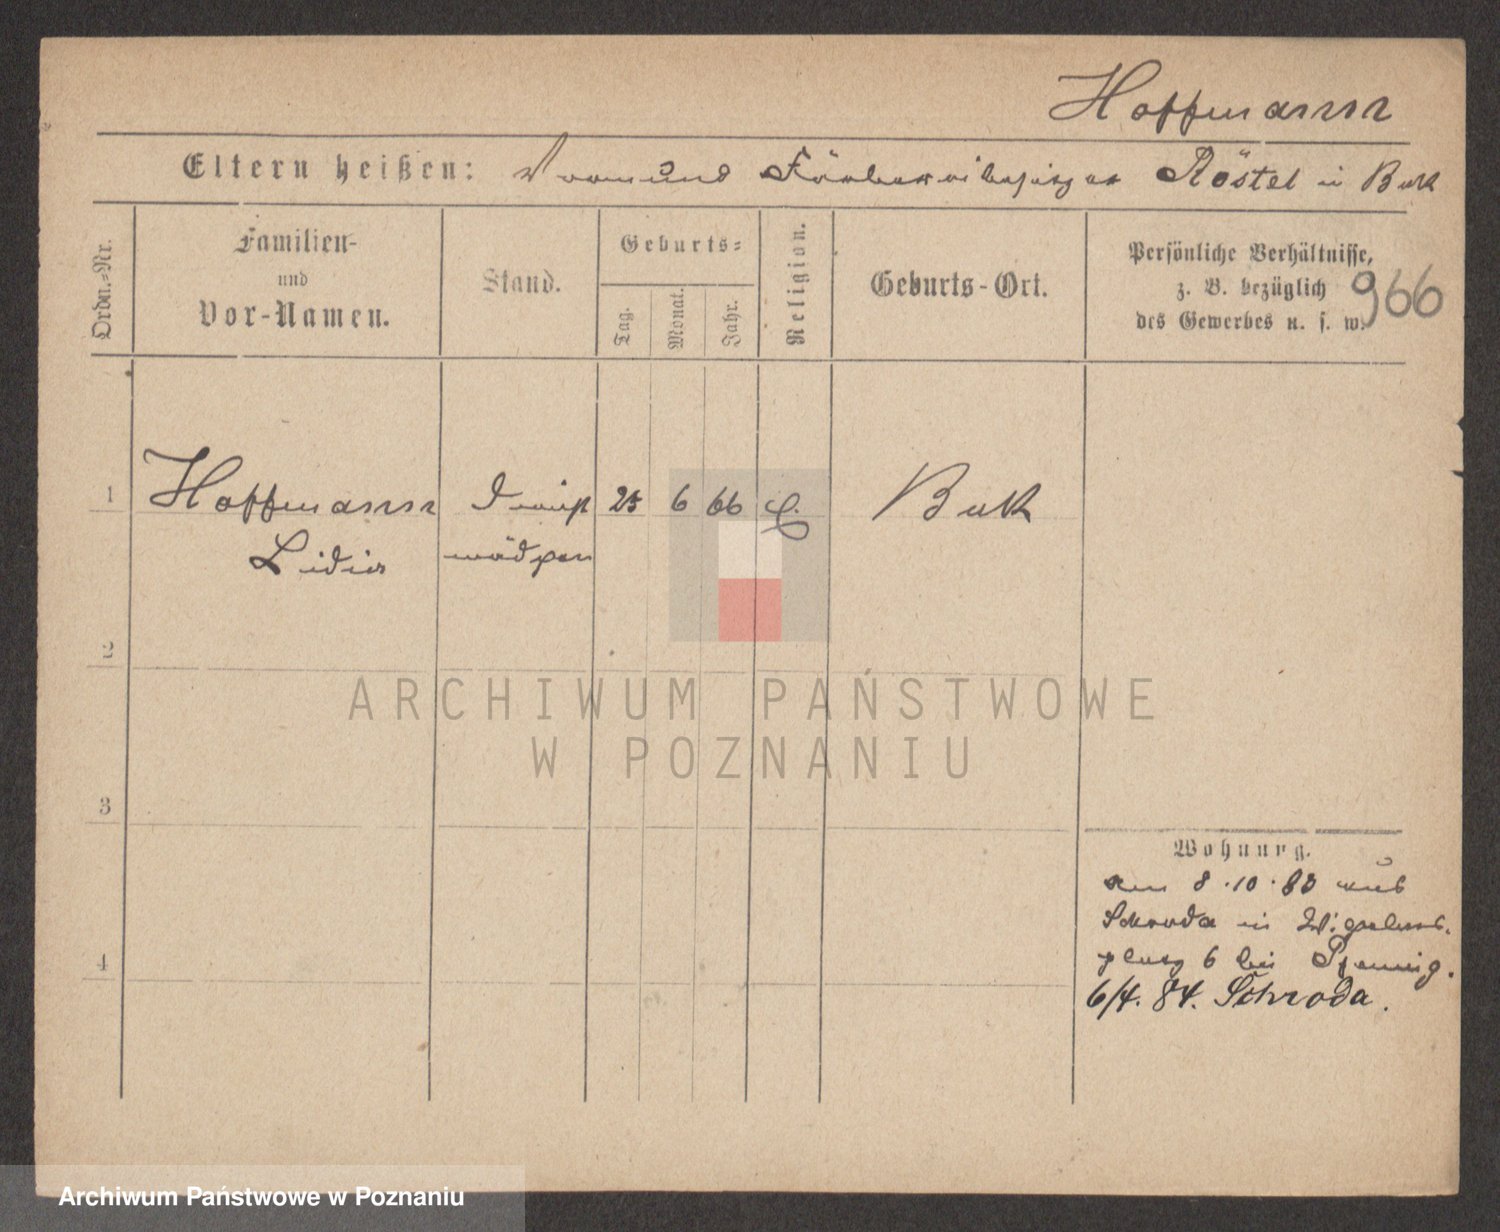 Hoffmann
Eltern heißen: Vormund Färbereibesitzer Röstel in Buk
Ordn.-Nr.
Familien-
und
Vor-Namen.
Stand.
Geburts-
Tag.
Monat.
Jahr.
Religion.
Geburts-Ort.
Persönliche Verhältnisse,
z. B. bezüglich
des Gewerbes u. s. w.
966
1
Hoffmann Dienst 25 6 66 Buk
Lidia mädchen
2
ARCHIWUM PAŃSTWOWE
W POZNANIU
3
Wohnung.
am 8.10.83 aus
Schroda in
platz 6 bei
4
6/4. 84. Schroda.
Archiwum Państwowe w Poznaniu